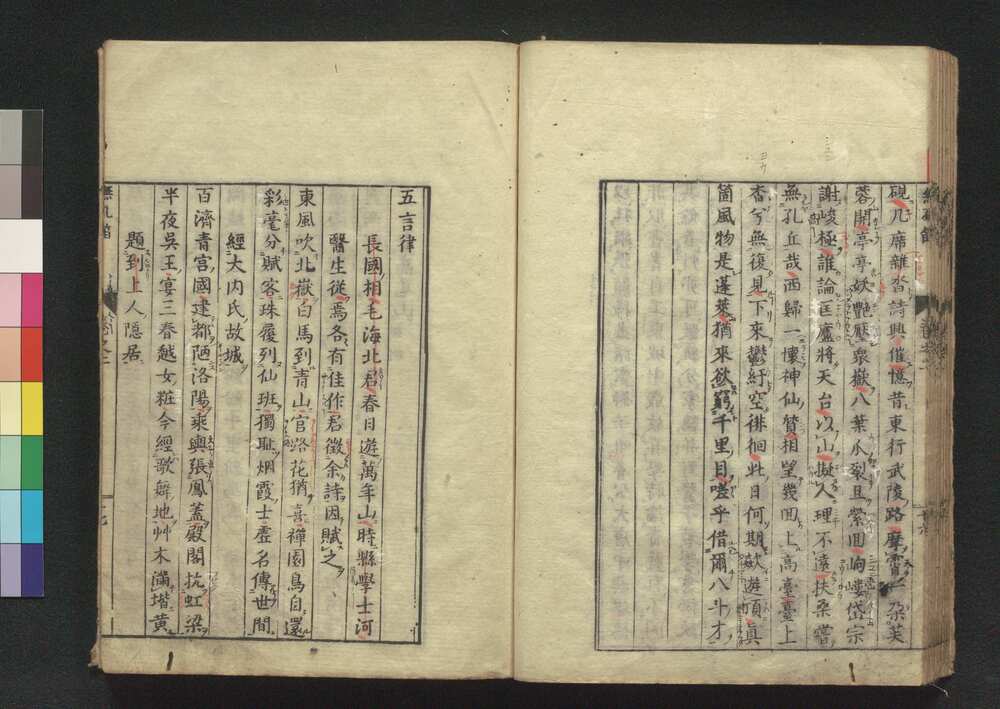 硯几席雜沓詩興催憶昔東行武陵路摩霄一朶芙
蓉開亭亭妖艷壓衆嶽八葉瓜裂且縈回岣嶁岱宗
謝峻極誰論匡廬將天台以山擬人理不遠扶桑嘗
無孔丘哉西歸一壞神仙贊相望幾回上高臺臺上
杳兮無復見下來鬱紆空徘徊此日何期遊頂眞
箇風物是蓬萊猶來欲窮千里目嗟乎借爾八斗才
五言律
長國相毛海北君春日遊萬年山時縣學士河
醫生從焉各有佳作君徵余詩因賦之
東風吹北嶽白馬到青山官路花猶喜禪園鳥自還
彩毫分賦客珠履列仙班獨耻烟霞士虛名傳世間
經大内氏故城
百濟青宮國建都陋洛陽乘輿張鳳蓋殿閣抗虹梁
半夜吳王宴三春越女粧今經歌舞地艸木滿堦黃
題到上人隱居
無孔笛
卷之三